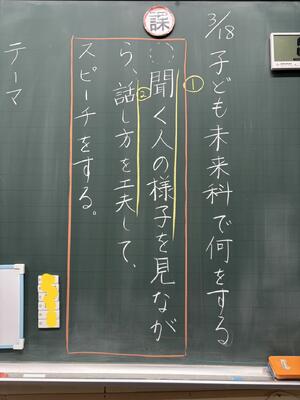 課
3/18 子ども未来科で何をする
①
◌聞く人の様子を見なが
②
ら、話し方を工夫して、
スピーチをする。
テーマ